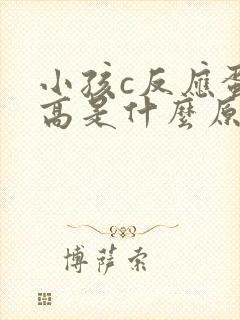 小孩c反應蛋
高是什麼原
博薩索